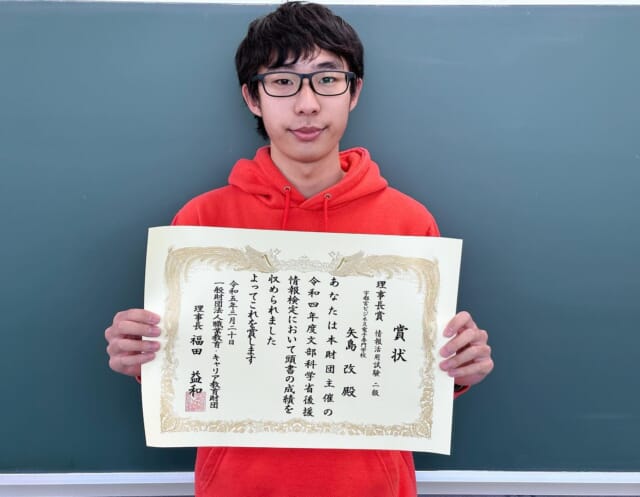 賞状
理事長賞 情報活用試験 二級
宇都宮ビジネス電子専門学校
矢島 改 殿
あなたは本財団主催の
令和四年度文部科学省後援
情報検定において頭書の成績を
収められました
よってこれを賞します
令和五年二月二十日
一般財団法人職業教育・キャリア教育財団
理事長 福田 益和